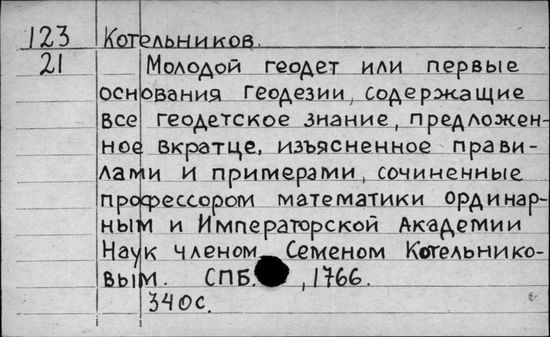 123 Котельников.
21 Молодой геодет или первые
основания геодезии, содержащие
все геодетское знание, предложен-
ное вкратце, изъясненное прави-
лами и примерами, сочиненные
профессором математики ординар-
ным и Императорской Академии
Наук членом Семеном Котельнико-
вым. СПБ. , 1766.
340с.